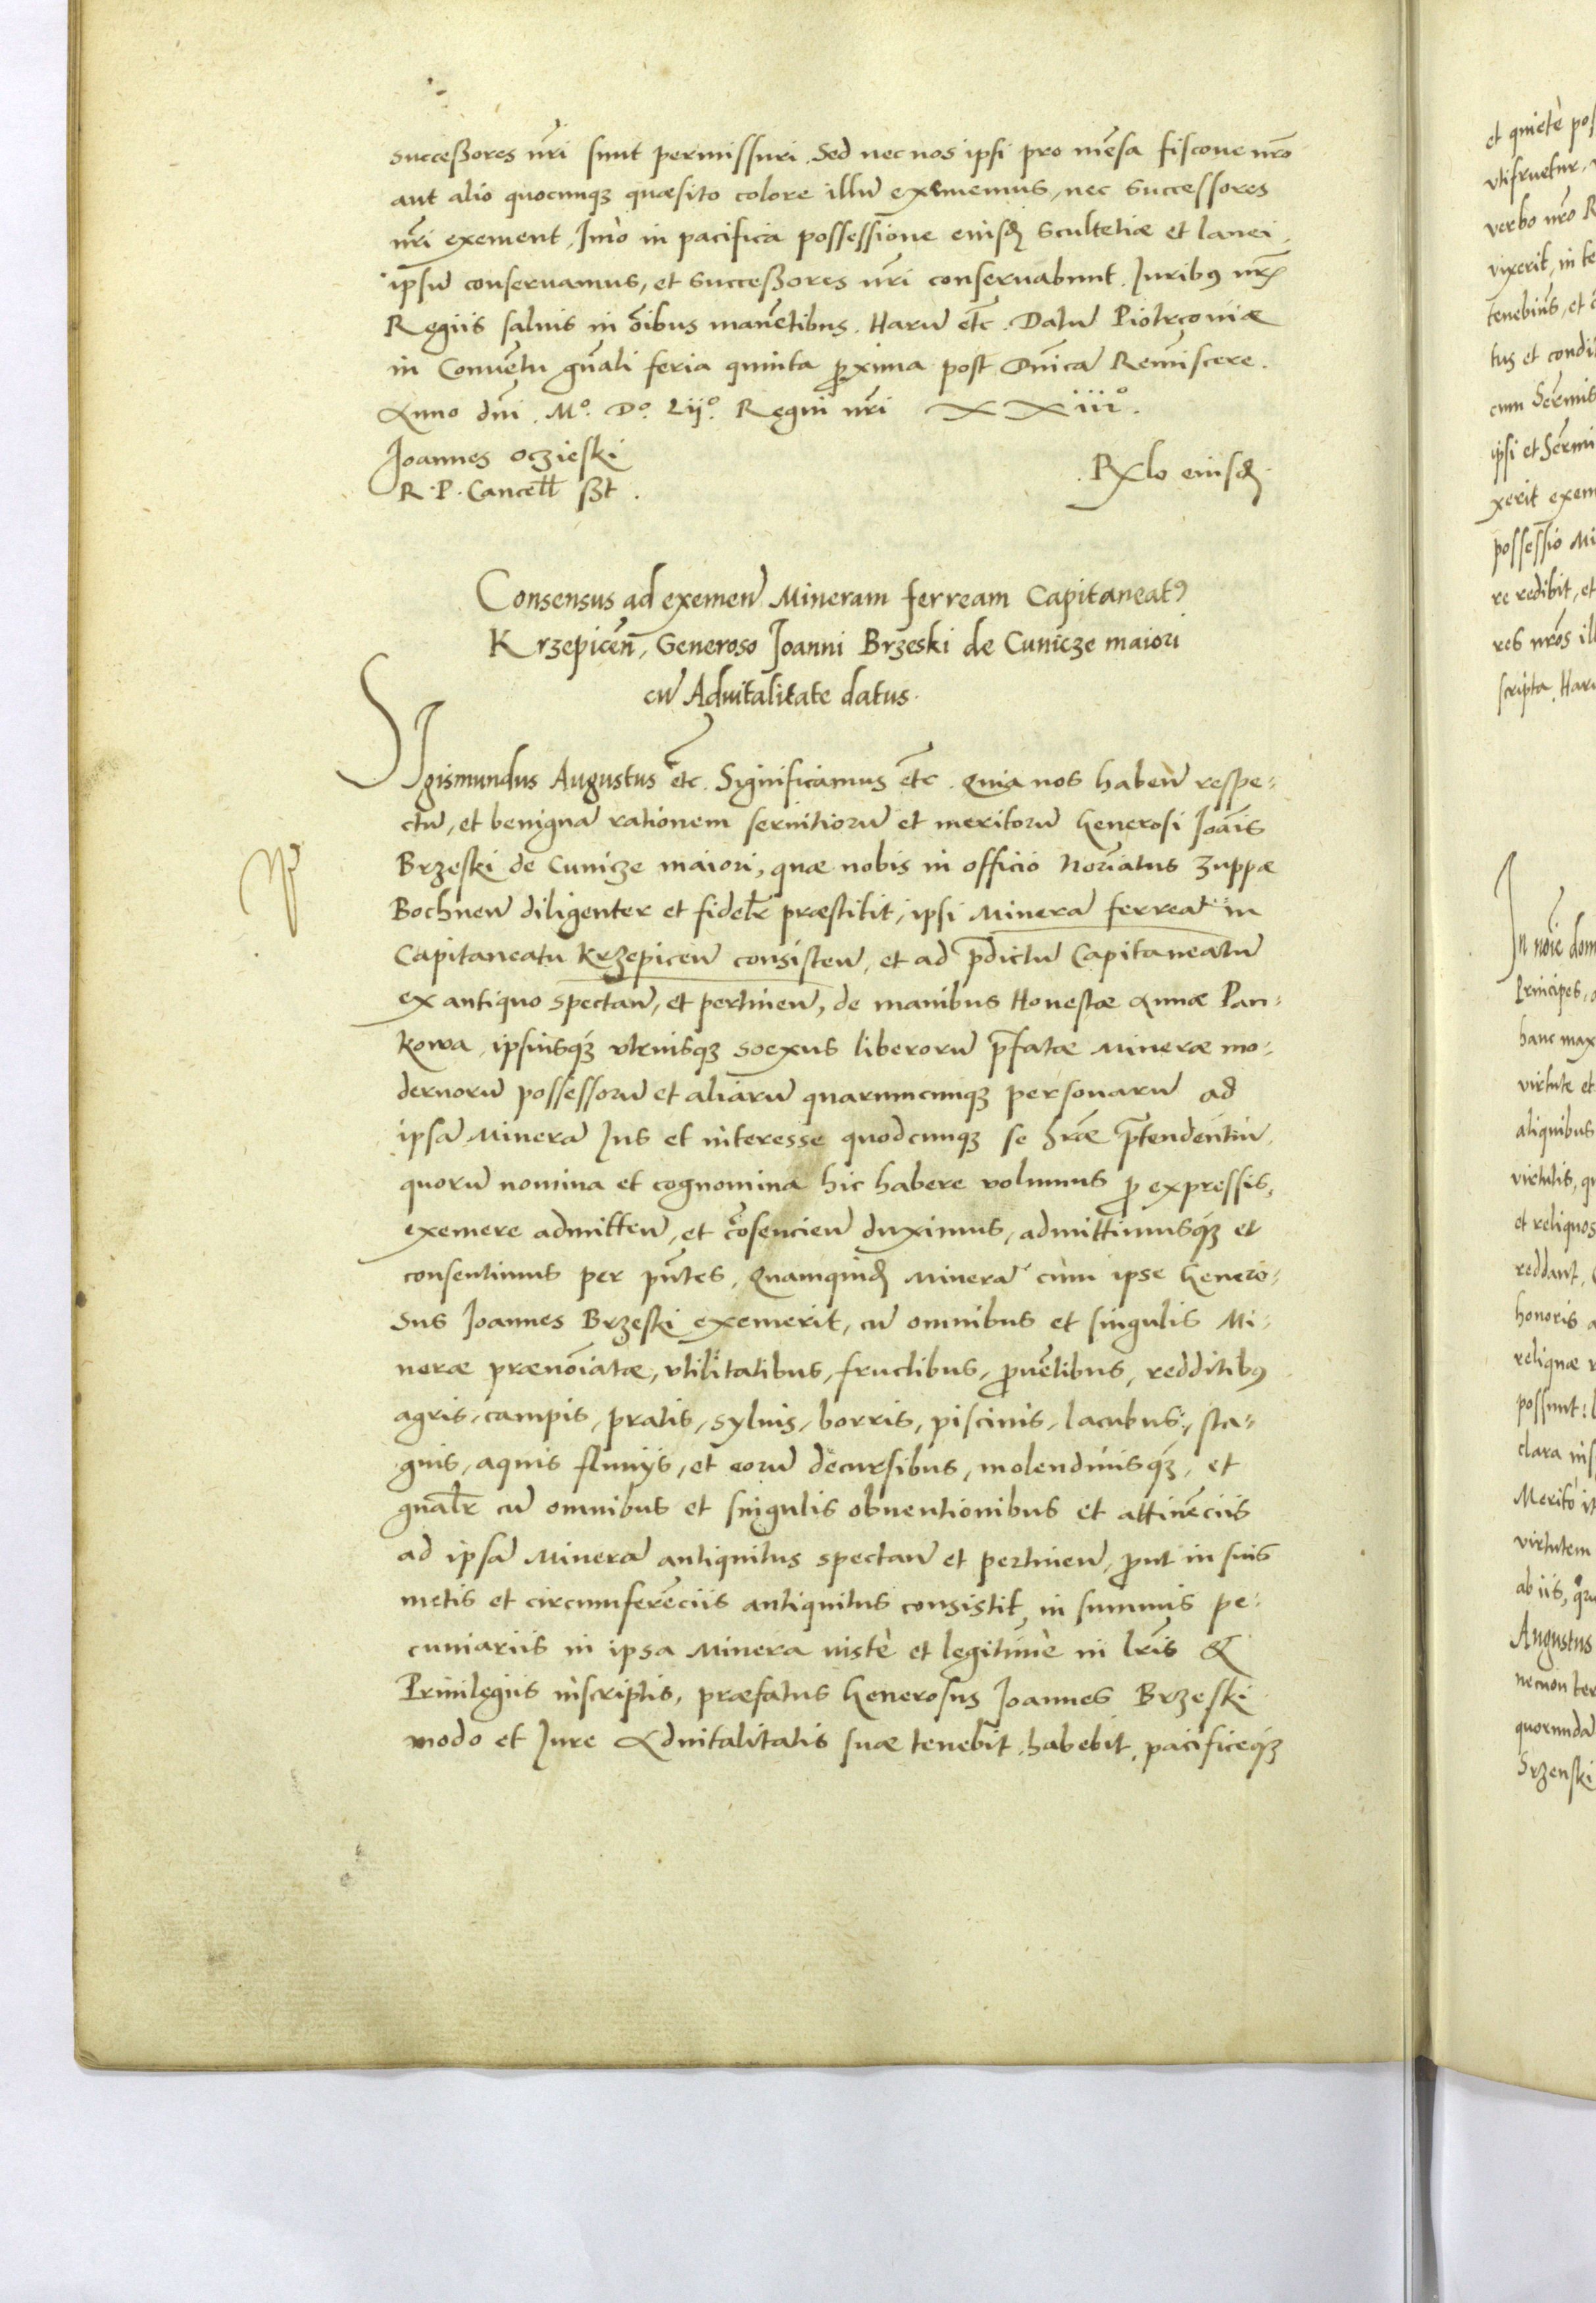 successores nr̃i sunt permissuri. Sed nec nos ipsi pro mẽsa fiscoue nr̃o
aut alio quocunqꝫ quæsito colore illũ eximemus, nec successores
nr̃i exement, Imò in pacifica possessione eiusd̃ Scultetiæ et lanei,
ipsũ conseruamus, et successores nr̃i conseruabunt. Iuribꝰ nr̃is
Regiis saluis in õibus manẽtibus. Harũ etc̃. Datũ Piotrcouiæ
in Conuẽtu gñali feria quinta ꝓxima post Dñicã Remĩscere.
Anno dñi. Mº. Dº. Lijº. Regni nr̃i XXiiiº.
Joannes oczieski
R. P. Cancell̃ sst.
Rẽlo eiusd̃.
Consensus ad exemeñ Mineram ferream Capitaneatꝰ
Krzepiceñ, Generoso Joanni Brzeski de Cunicze maiori
cũ Aduitalitate datus.
SIgismundus Augustus etc̃. Significamus etc̃. Quia nos habeñ respe-
ctũ, et benignã rationem seruitiorũ et meritorũ Generosi Joãis
Brzeski de Cunicze maiori, quæ nobis in officio Nor̃iatus Zuppæ
Bochneñ diligenter et fidelr̃ præstitit, ipsi Minerã ferreã in
Capitaneatu Krzepiceñ consisteñ, et ad p̃dictũ Capitaneatũ
ex antiquo spectañ, et pertineñ, de manibus Honestæ Annæ Pan-
kowa, ipsiusqꝫ vtriusqꝫ sexus liberorũ p̃fatæ Mineræ mo-
dernorũ possessorũ et aliarũ quarumcunqꝫ personarũ ad
ipsã Minerã Ius et interesse quodcunqꝫ se hr̃e p̃tendentiũ,
quorũ nomina et cognomina hic habere volumus ꝓ expressis,
exemere admitteñ, et cõsencieñ duximus, admittimusqꝫ et
consentimus per pñtes, Quamquid̃ Minerã cùm ipse Genero-
sus Joannes Brzeski exemerit, cũ omnibus et singulis Mi-
neræ prænõiatæ, vtilitatibus, fructibus, ꝓuẽtibus, redditibꝰ
agris, campis, pratis, syluis, borris, piscinis, lacubus, sta-
gnis, aquis fluuijs, et eorũ decursibus, molendinisqꝫ, et
gñalr̃ cũ omnibus et singulis obuentionibus et attinẽciis
ad ipsã Minerã antiquitus spectañ et pertineñ, ꝓut in suis
metis et circumferẽciis antiquitus consistit, in summis pe-
cuniariis in ipsa Minera iustè et legitimè in lr̃is &
Priuilegiis inscriptis, præfatus Generosus Joannes Brzeski
modo et Iure Aduitalitatis suæ tenebit, habebit, pacificeqꝫ
et quietè pos
vtifruetur,
verbo nr̃o R
vixerit, in te
tenebim̃s, et
tus et condi
cum Serm̃is
ipsi et Serm̃i
xerit exem
possessio Mi
re redibit, et
res nr̃os ill
scripta. Har
In noĩe dom
Principes,
hanc max
virtute et
aliquibus
virtutis, qu
et reliquos
reddant,
honoris a
reliquæ
possunt:
clara ins
Meritò it
virtutem
ab iis, qu
Augustus
necnon ter
quorundã
Srzenski